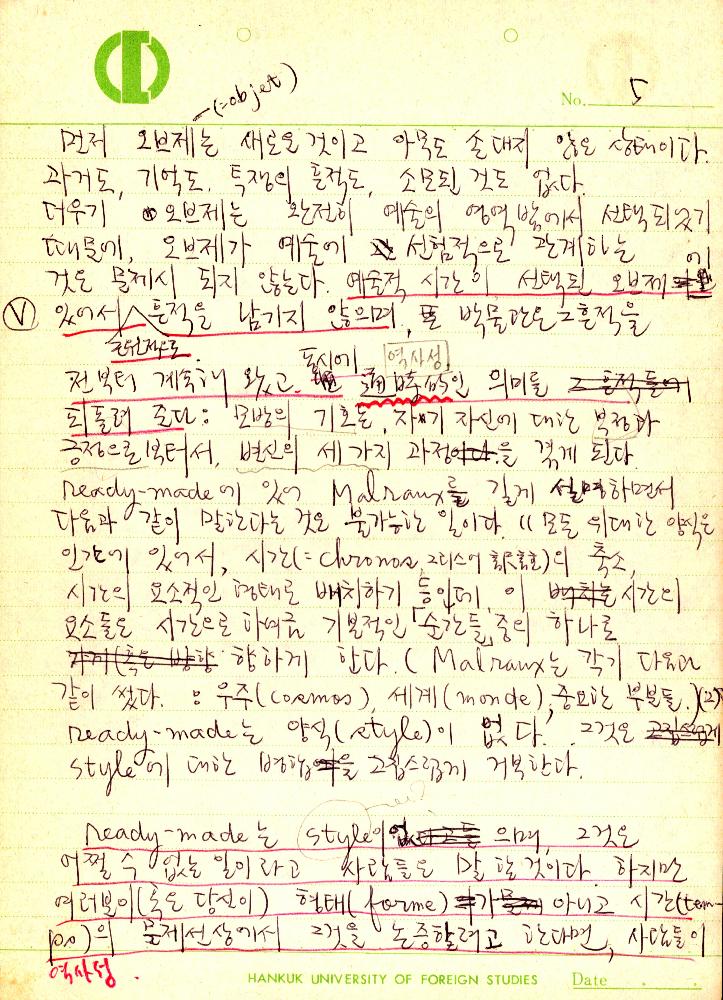 (=objet)
No. 5
먼저 오브제는 새로운 것이고 아무도 손대지 않은 상태이다.
과거도, 기억도, 투쟁의 흔적도, 소모된 것도 없다.
더우기 오브제는 완전히 예술의 영역 밖에서 선택되었기
때문에, 오브제가 예술에 선험적으로 관계하는
것은 문제시 되지 않는다. 예술적 시간이 선택된 오브제에
V 있어서 흔적을 남기지 않으며, 박물관은 그 흔적을
동시에 역사성
전부터 계속해 왔고 의미를
되돌려 준다: 모방의 기호는, 자기 자신에 대한 부정과
긍정으로부터서, 변신의 세가지 과정을 겪게 된다.
ready-made에 있어 Malraux를 길게 설명하면서
다음과 같이 말한다는 것은 불가능한 일이다. "모든 위대한 양식은
인간에 있어서, 시간(=chronos, 그리스어)의 축소,
시간의 요소적인 형태로 배치하기 등인데, 이 시간의
요소들은 시간으로 하여금 기본적인 「순간들」중의 하나로
향하게 한다. (Malraux는 각기 다음과
같이 썼다. : 우주(cosmos), 세계(monde), 중요한 부분들.)(2)
ready-made는 양식(style)이 없다. 그것은
style에 대한 고집스럽게 거부한다.
ready-made는 style이 없으며, 그것은
어쩔 수 없는 일이라고 사람들은 말할 것이다. 하지만
여러분이(혹은 당신이) 형태(forme)가 아니고 시간(tem-
ps)의 문제선상에서 그것을 논증할려고 한다면, 사람들이
역사성.
HANKUK UNIVERSITY OF FOREIGN STUDIES Date . .